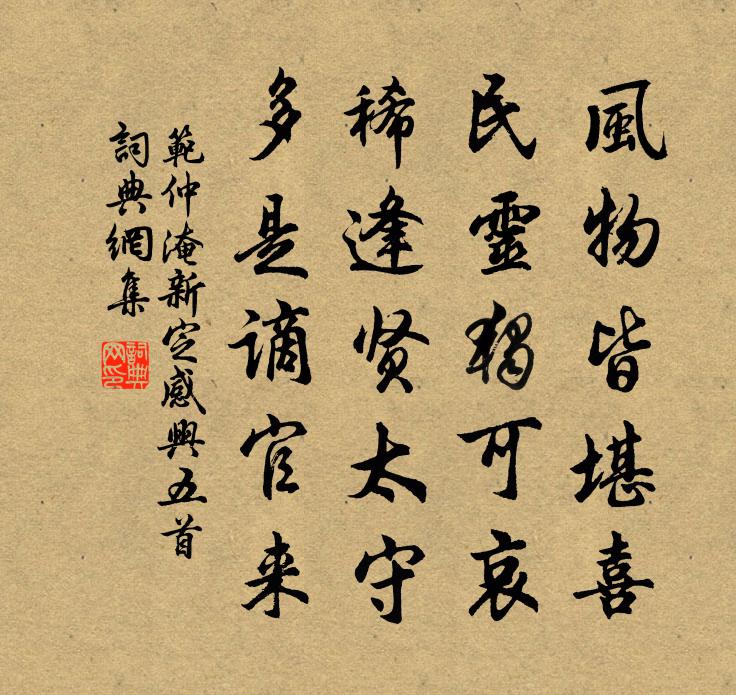 風物皆堪喜
民靈獨可哀
稀逢贤太守
多是謫官来
範仲淹新定感興五首
詞典網集
詞典网印